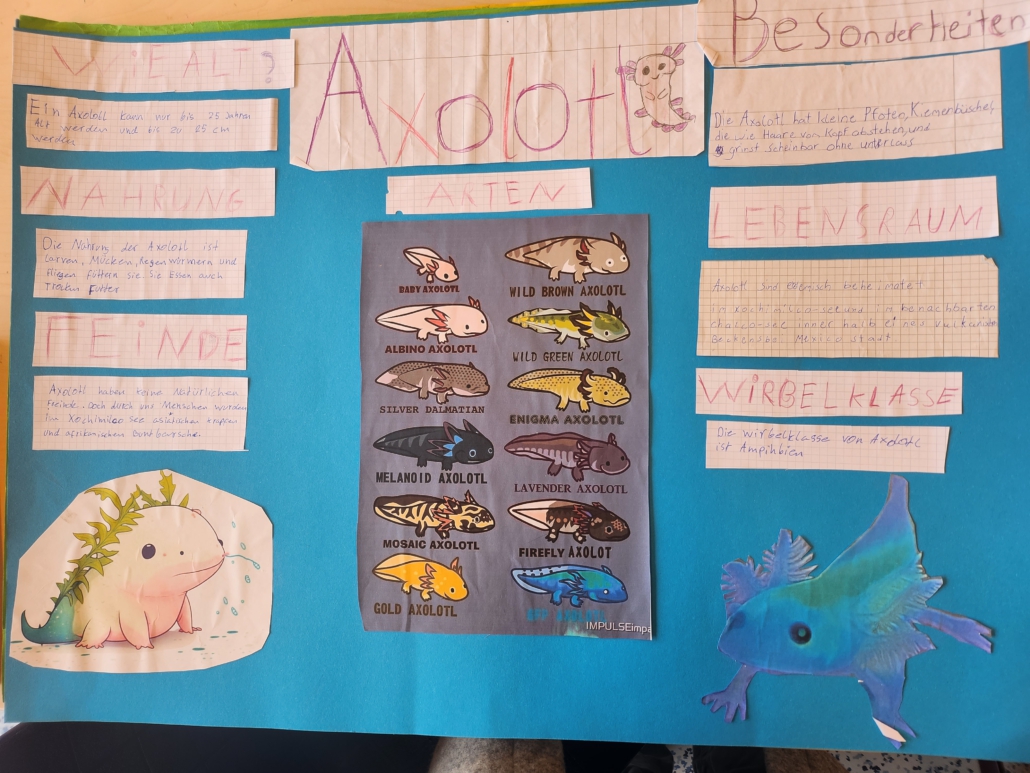 WIE ALT?
Ein Axolotl kann nur bis 25 Jahren
Alt werden und bis zu 25 cm
werden
NAHRUNG
Die Nahrung der Axolotl ist
Larven, Mücken, Regenwürmern und
fliegen füttern sie Sie Essen auch
Trocken Futter
FEiNDE
Axolotl haben keine Natürlichen
Feinde. Doch durch uns Menschen wurden
im Xochimilco see asiatischen Krapfen
und afrikanischen Buntbarsche.
Axolotl
ARTEN
BABY AXOLOTL
WILD BROWN AXOLOTL
ALBINO AXOLOTL
WILD GREEN AXOLOTL
SILVER DALMATIAN
ENIGMA AXOLOTL
MELANOID AXOLOTL
LAVENDER AXOLOTL
MOSAIC AXOLOTL
FIREFLY AXOLOT
GOLD AXOLOTL
AXOLOTL
IMPULSEimpa
Besonderheiten
Die Axolotl hat kleine Pfoten, Kiemenbüschel,
die wie Haare von Kopf abstehen, und
griest scheinbar ohne unterlass
LEBENSRAUM
Axolotl sind
in benachbarten
innerhalb vulkanen
Mexiko stadt
WiRBELKLASSE
Die wirbelklasse von Axolotl
ist Ampihbien